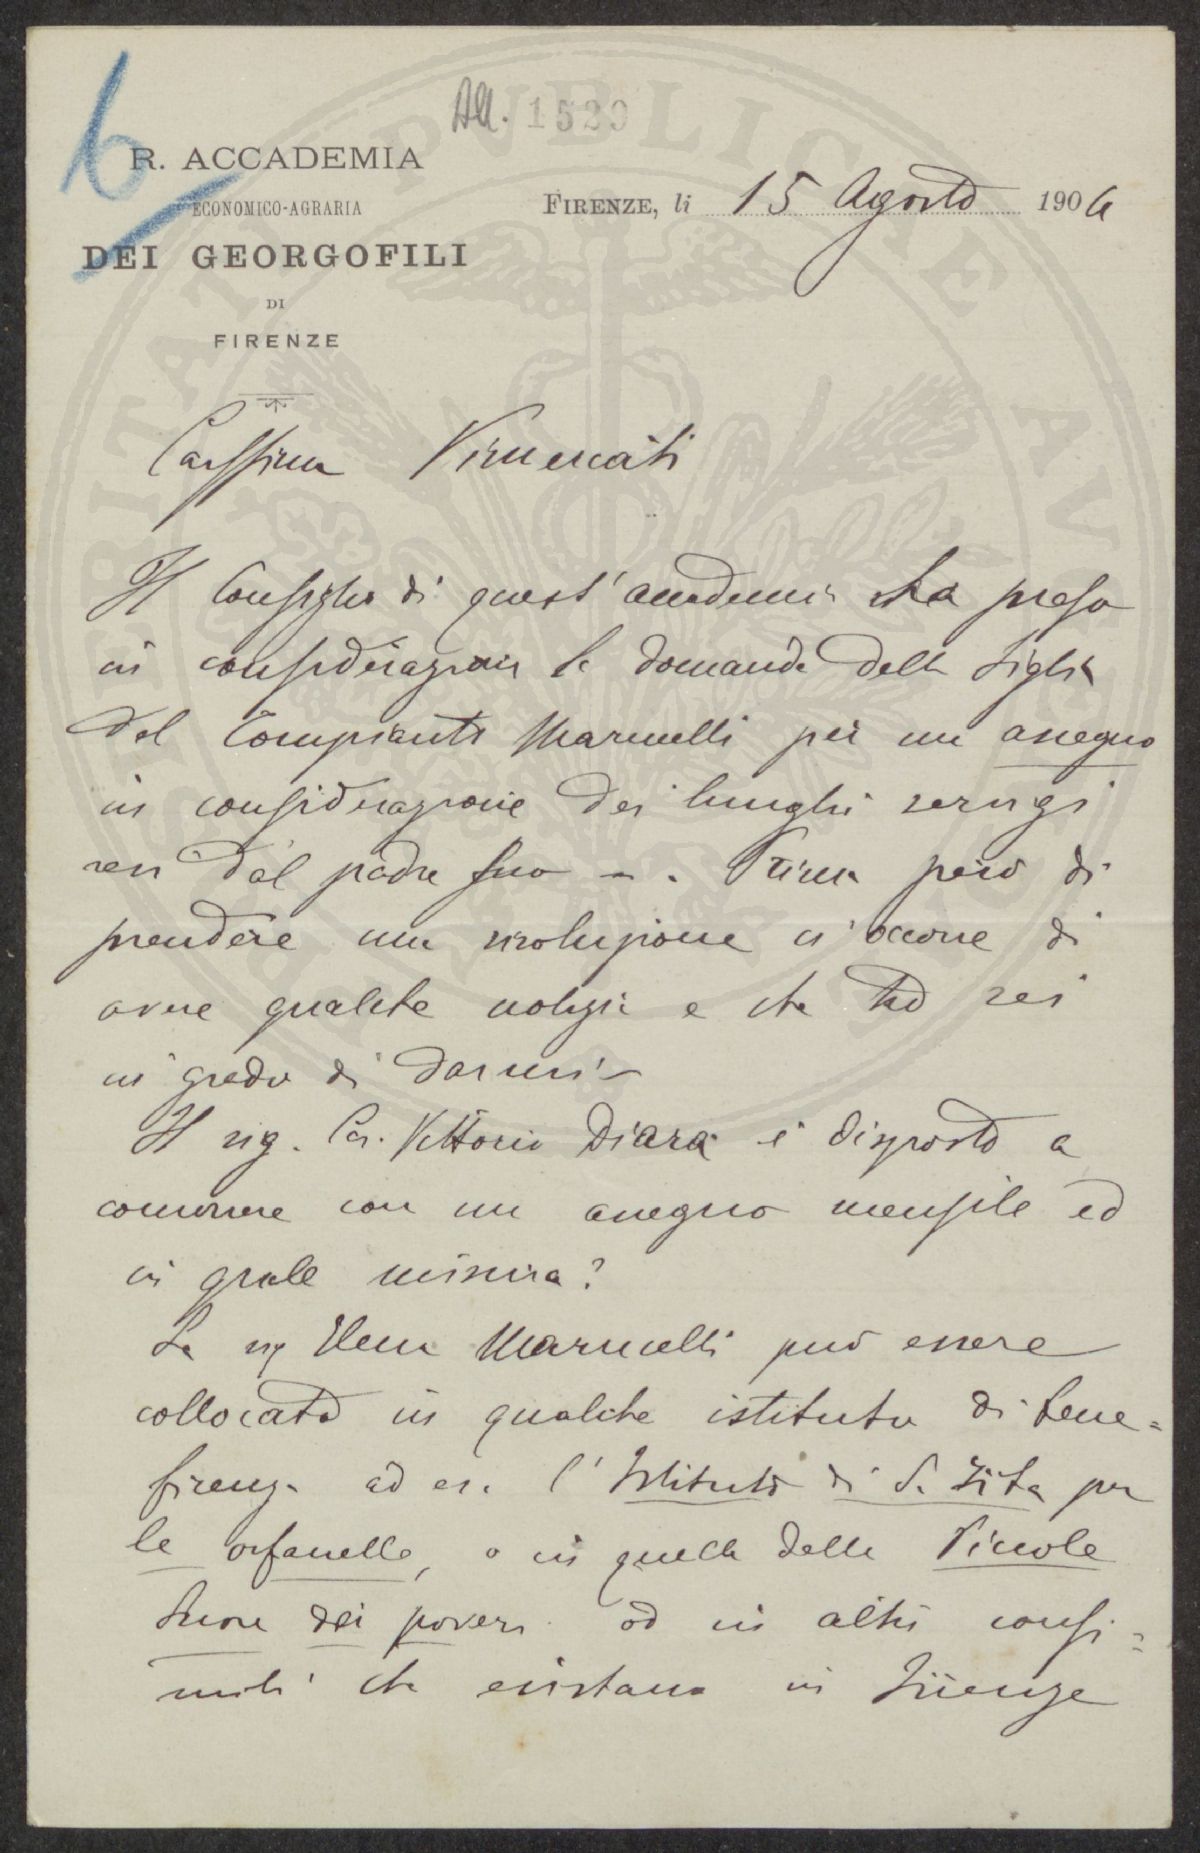 6
All. 1520
R. ACCADEMIA
ECONOMICO-AGRARIA
DEI GEORGOFILI
DI
FIRENZE
FIRENZE, li 15 Agosto 1904
PROSPERITATI PUBLICAE AUGENDAE
Vimercati
Il Consiglio di quest'accademia ha preso
in considerazione la domanda della figlia
del Compianto Marucelli per un assegno
in considerazione dei lunghi servizi
resi dal padre suo - . Prima però di
prendere una risoluzione ci occorre di
avere qualche notizia e che tu sei
in grado di darmi -
Il sig. Vittorio è disposto a
concorrere con un assegno mensile ed
in quale misura?
La sig Elena Marucelli può essere
collocata in qualche istituto di bene=
ficenza ad es. l'Istituto di S. Zita per
le orfanelle, o in quella delle Piccole
Suore dei poveri od in altri consi=
mili che esistano in Firenze